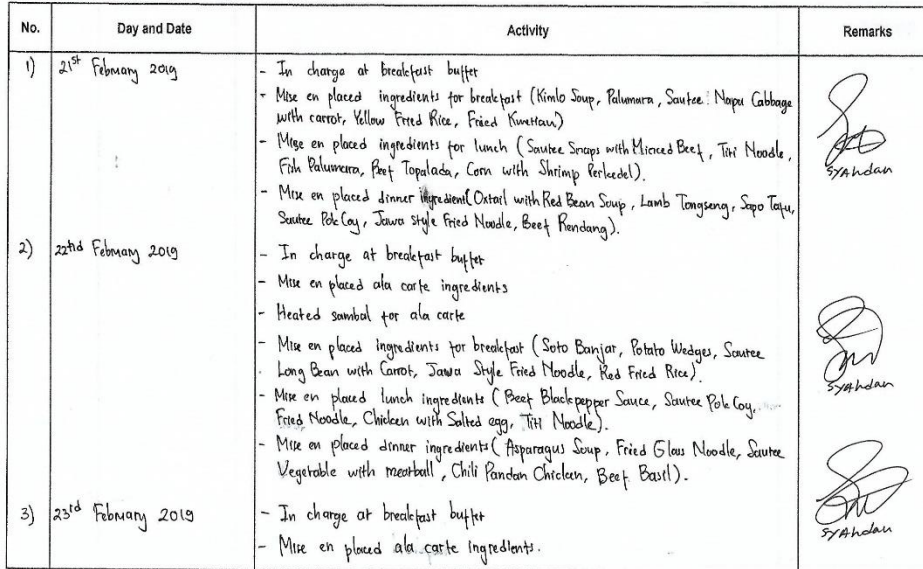 No. Day and Date Activity Remarks
1) 21st February 2019 - In charge at breakfast buffet
- Mise en placed ingredients for breakfast (Kimlo Soup, Palumara, Sautee Napu Cabbage
with carrot, Yellow Fried Rice, Fried Kwetiau)
- Mise en placed ingredients for lunch (Sautee Snaps with Minced Beef, Titi Noodle,
Fish Palumara, Beef Topalada, Corn with Shrimp Perkedel).
- Mise en placed dinner ingredient (Oxtail with Red Bean Soup, Lamb Tongseng, Sapo Tafu,
Sautee Pok Coy, Jawa style Fried Noodle, Beef Rendang).
Syahdan
2) 22nd February 2019 - In charge at breakfast buffet
- Mise en placed ala carte ingredients
- Heated sambal for ala carte
- Mise en placed ingredients for breakfast (Soto Banjar, Potato Wedges, Sautee
Long Bean with Carrot, Jawa Style Fried Noodle, Red Fried Rice).
- Mise en placed lunch ingredients (Beef Blackpepper Sauce, Sautee Pok Coy,
Fried Noodle, Chicken with Salted egg, Titi Noodle).
- Mise en placed dinner ingredients (Asparagus Soup, Fried Glass Noodle, Sautee
Vegetable with meatball, Chili Pandan Chicken, Beef Basil).
Syahdan
3) 23rd February 2019 - In charge at breakfast buffet
- Mise en placed ala carte ingredients.
Syahdan